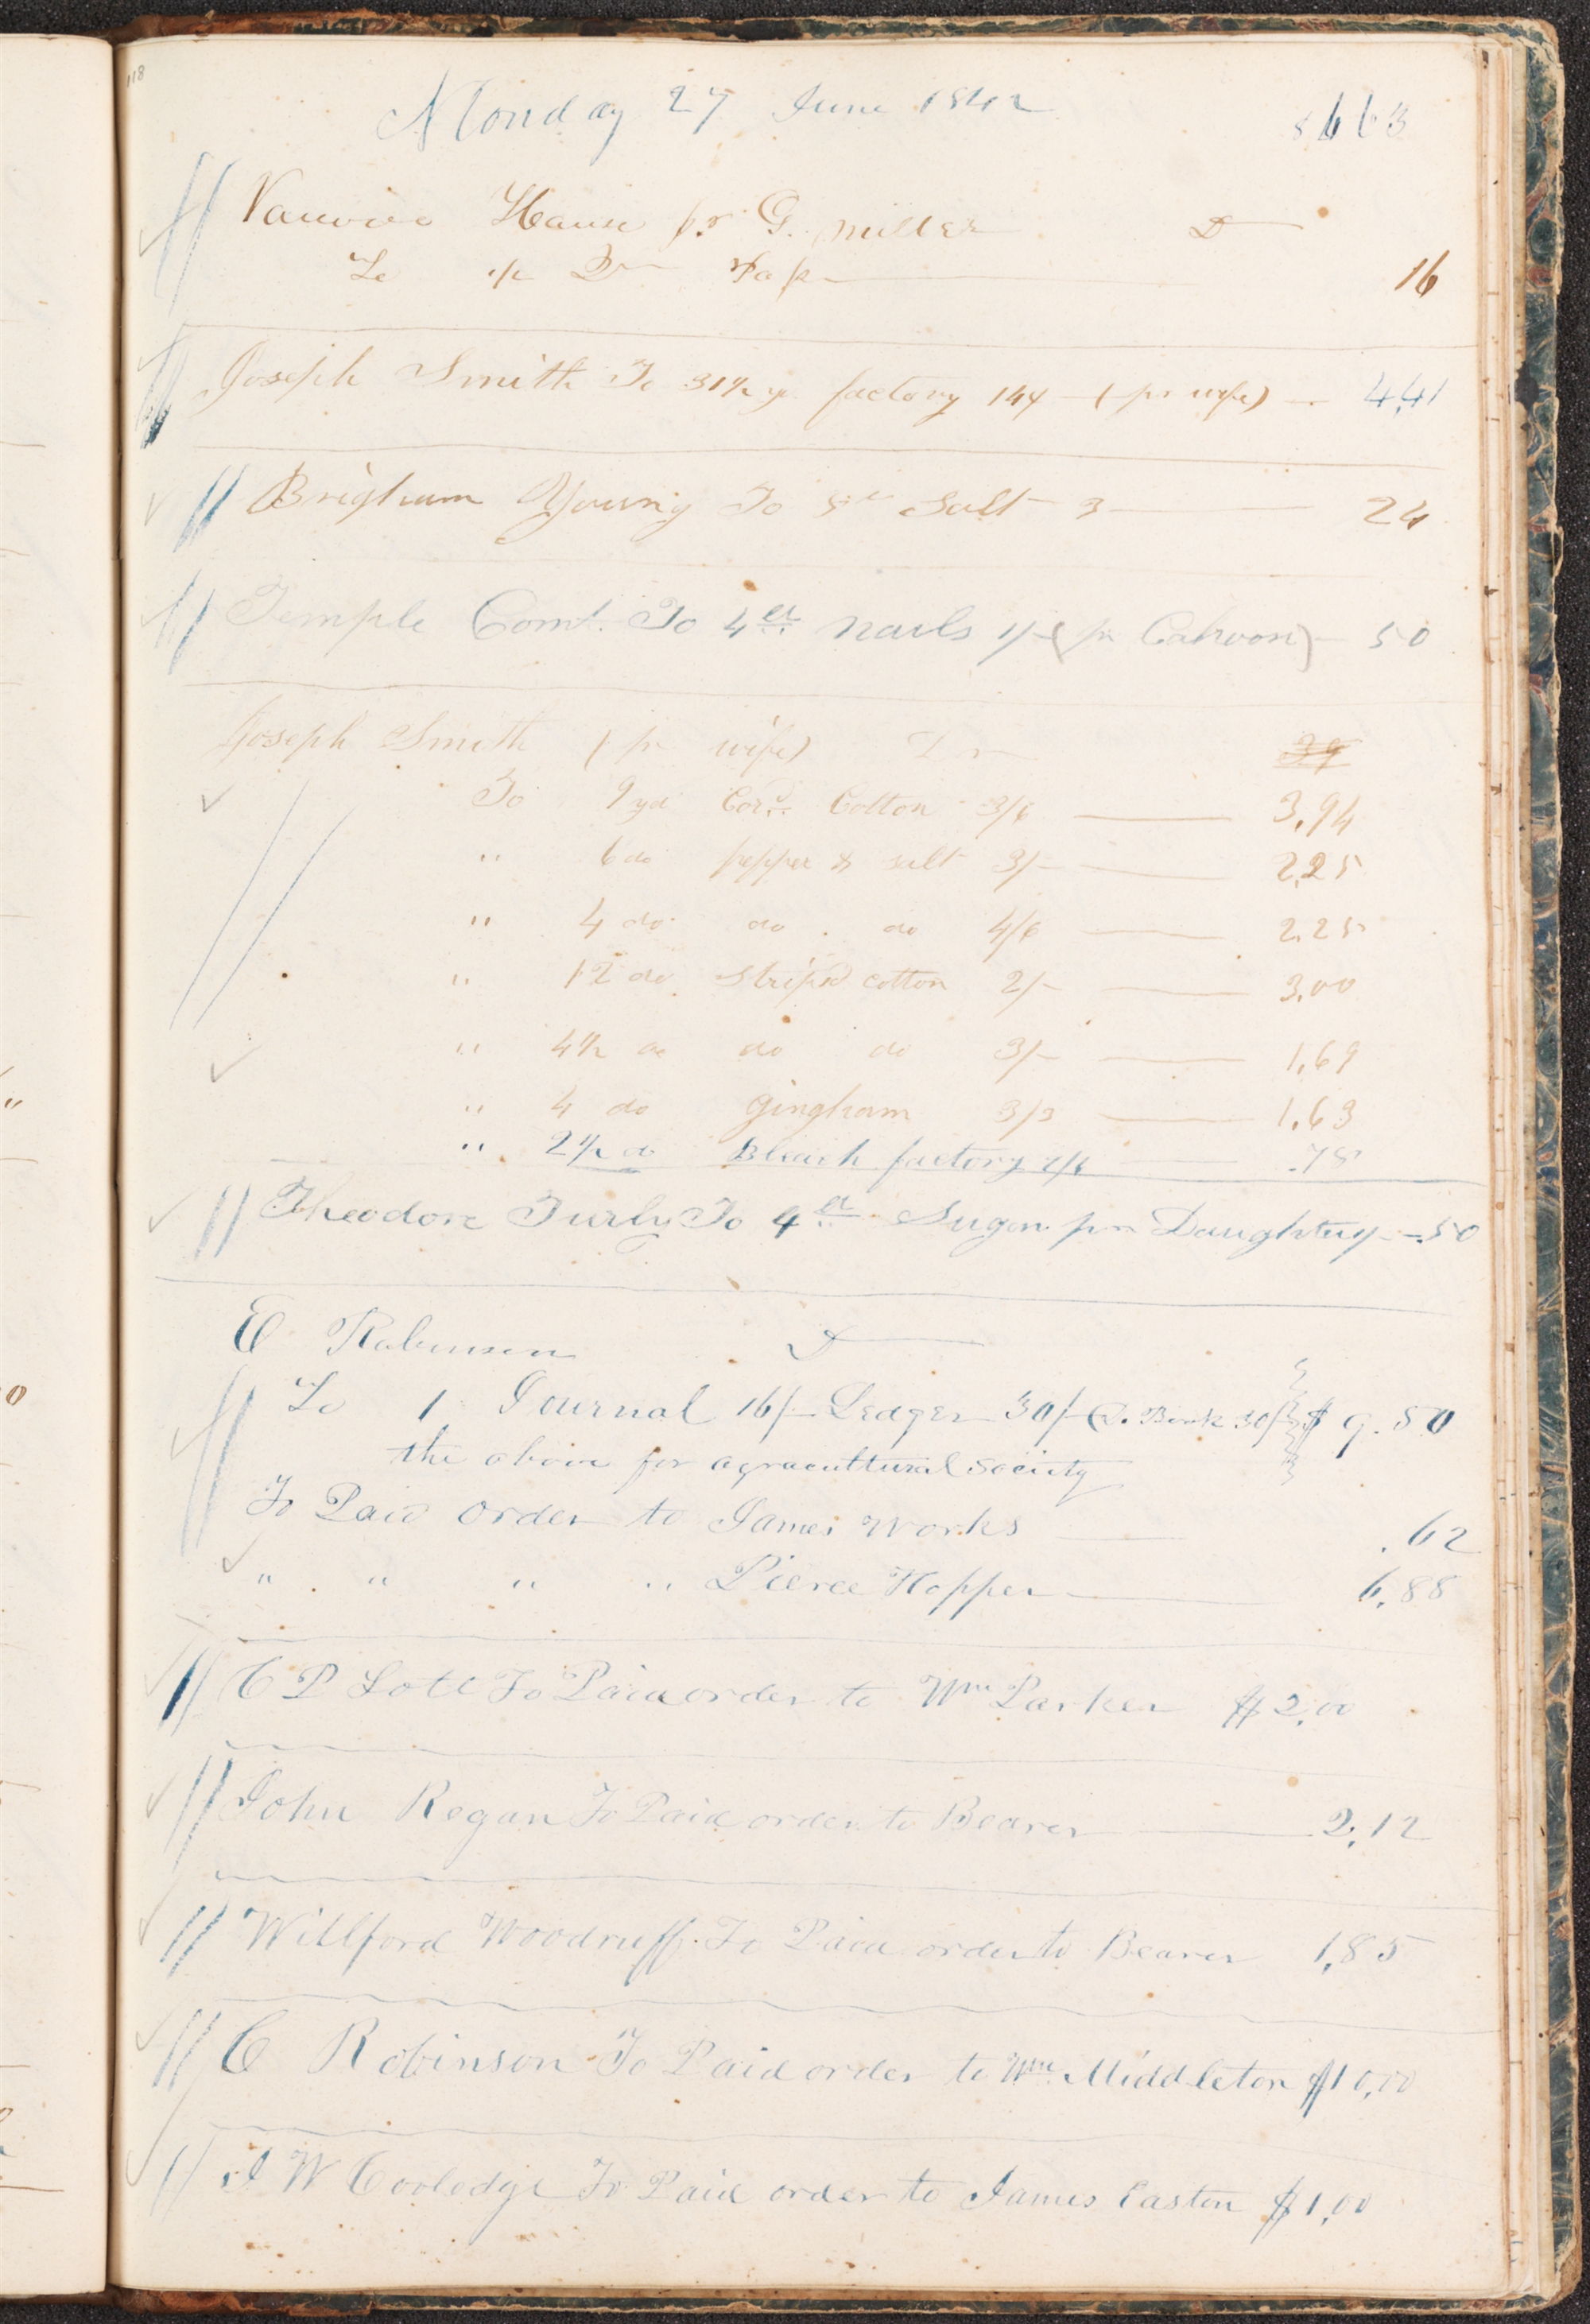 118
Monday 27 June 1842
Nauvoo House pr G. Miller D
To Dr 16
Joseph Smith To 31½ yd factory 14¢ (pr wife) 4,41
Brigham Young To 8 lb Salt 3 24
Temple Comt. To 4 lb nails 1/- (pr Cahoon) 50
Joseph Smith (pr wife) Dr 39
To 9 yd Cord. Cotton 3/6 3,94
" 6 do pepper & salt 3/- 2,25
" 4 do do do 4/6 2,25
" 12 do Striped cotton 2/- 3,00
" 4½ do do do 3/- 1,69
" 4 do Gingham 3/3 1,63
" 2½ do Bleach factory 2/6 .78
Theodore Turly To 4 lb Sugar pr Daughter .50
E Robinson D
To 1 Journal 16/- Ledger 30/- D. Book 30/- $ 9.50
the above for agracultural Society
To Paid order to James Works .62
" " " " Pierce Hopper 6,88
C P Lott To Paid order to Wm Parker $2,00
John Regan To Paid order to Bearer 2,12
Willford Woodruff To Paid order to Bearer 1,85
E Robinson To Paid order to Wm Middleton $10,00
J W Cooledge To Paid order to James Easton $1,00